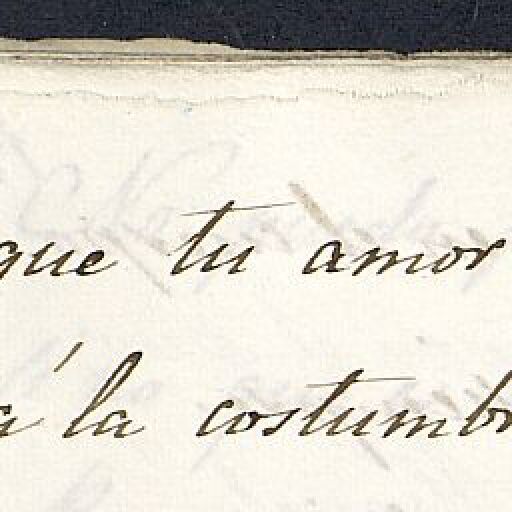 que tu amor
á la costumbr